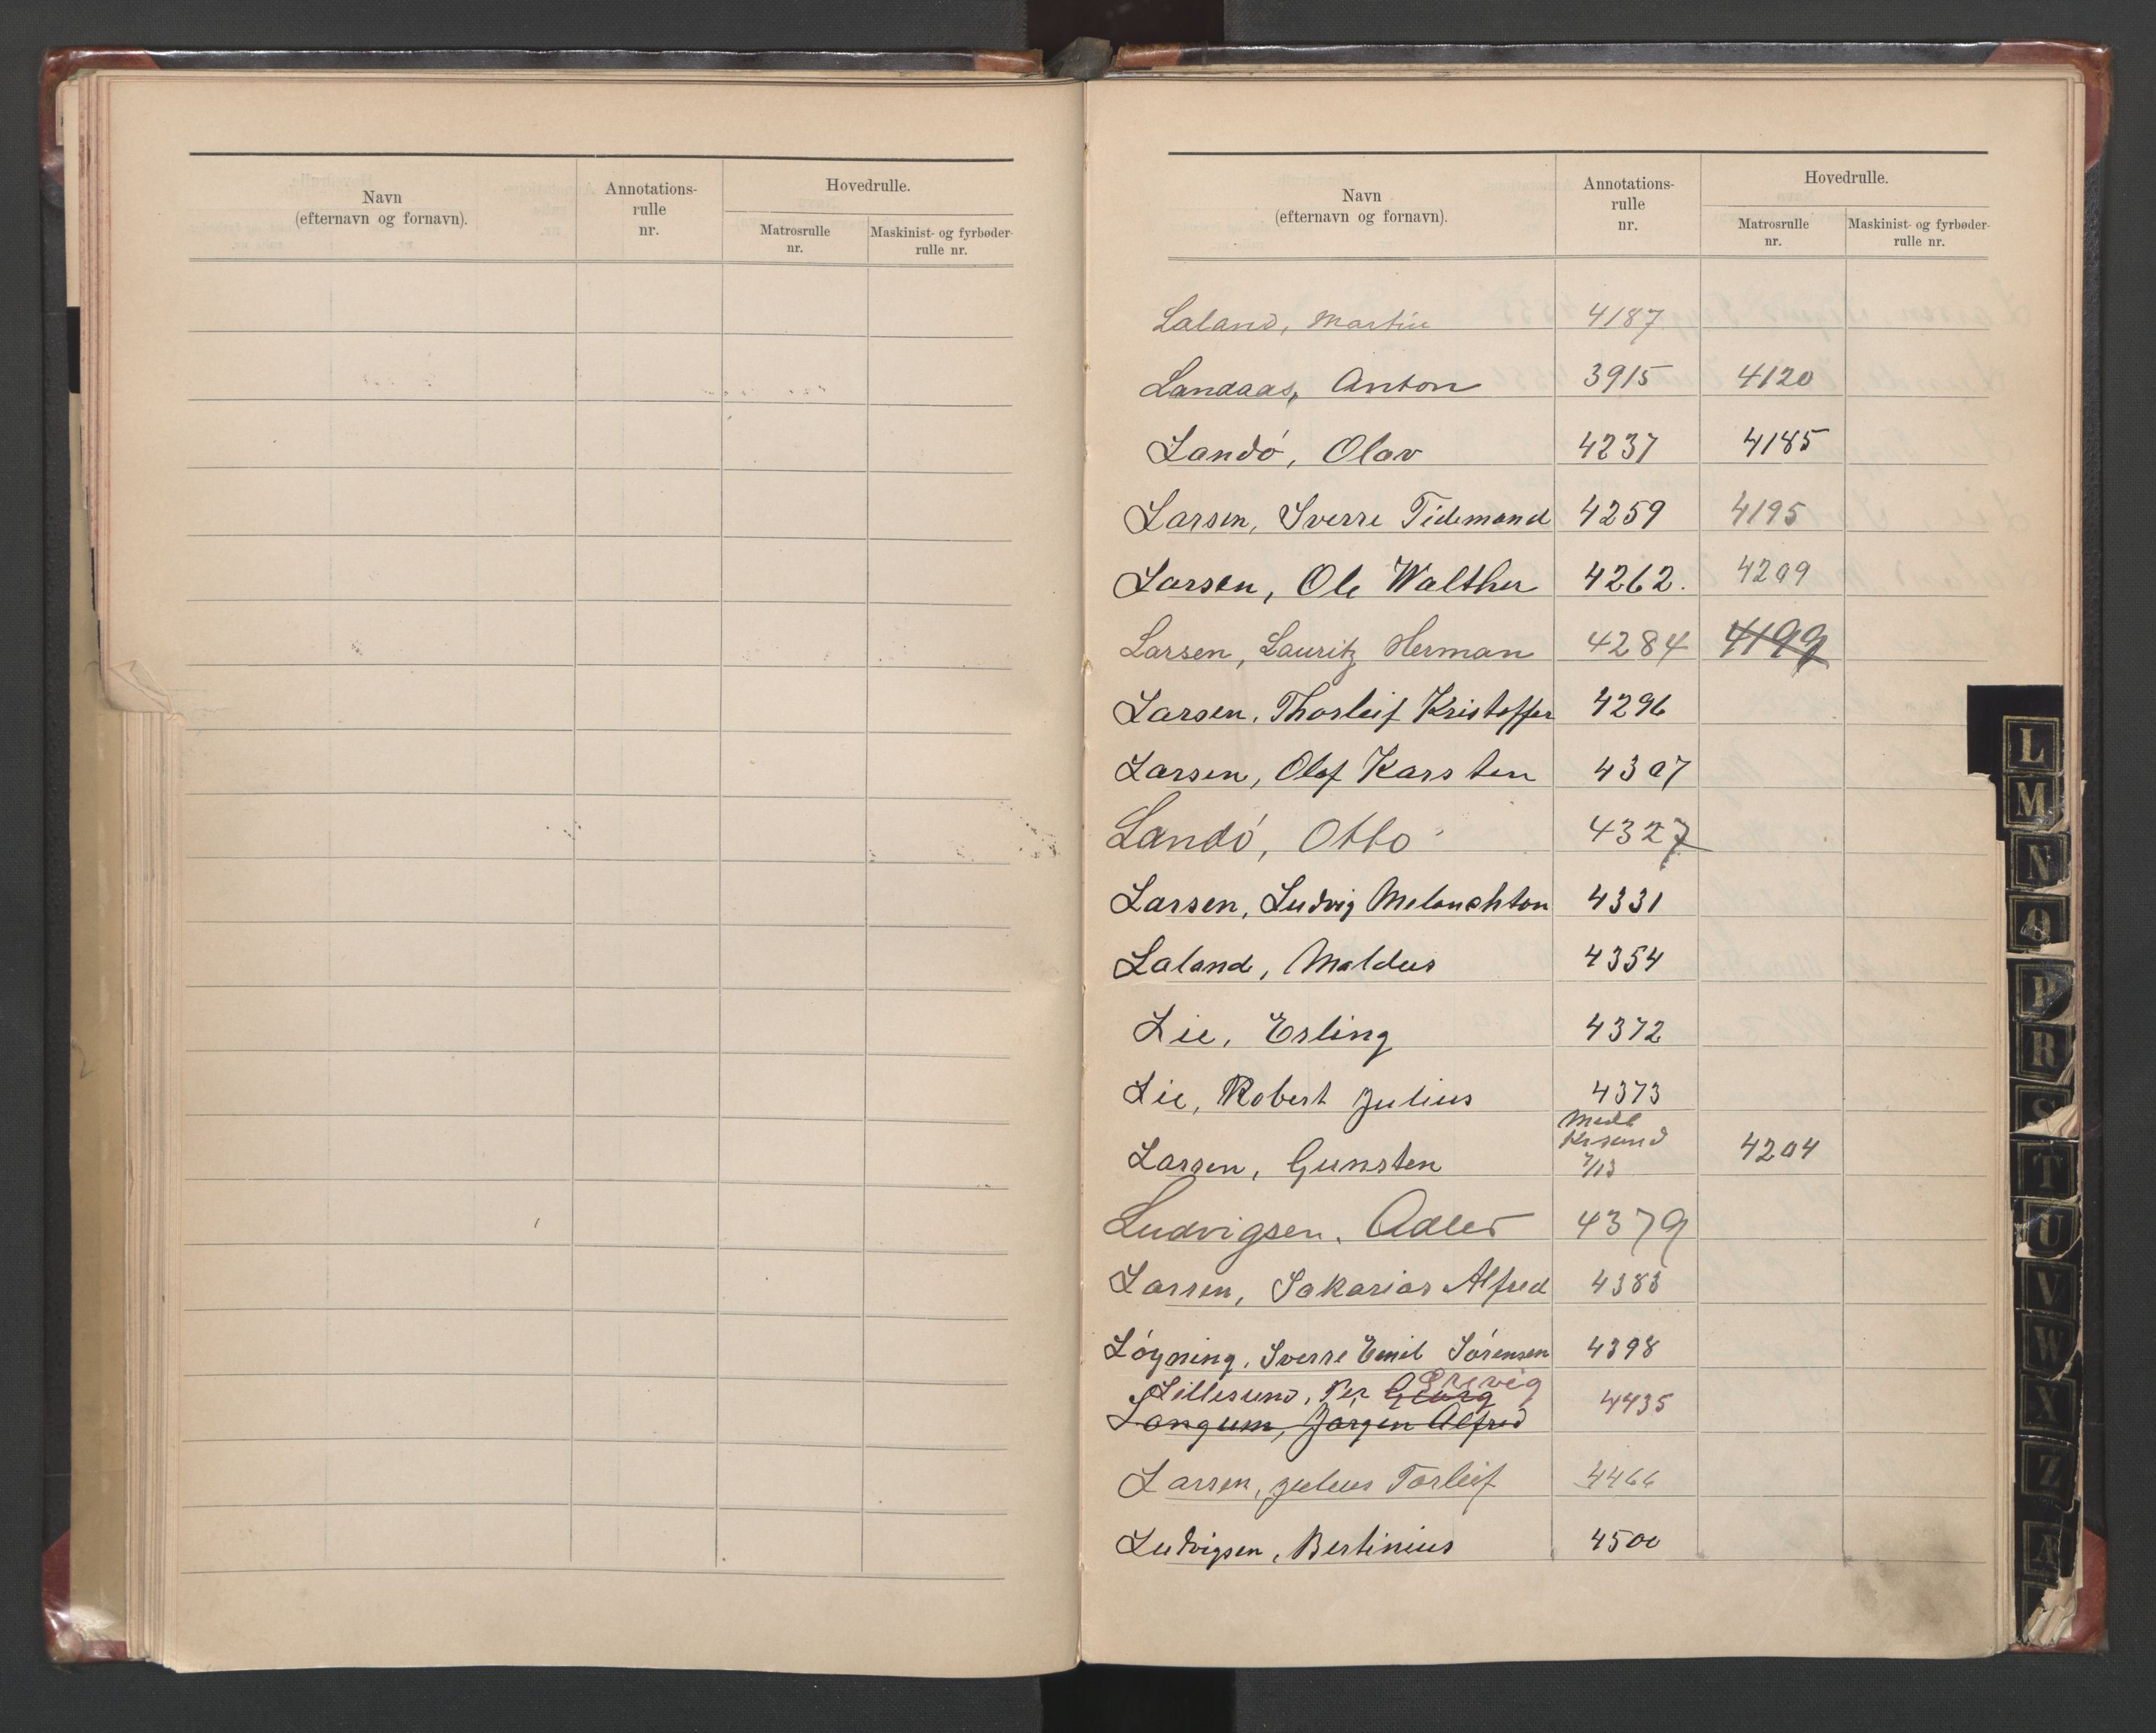 Navn
(efternavn og fornavn).
Annotations-
rulle
nr.
Hovedrulle.
Matrosrulle
nr.
Maskinist- og fyrbøder-
rulle nr.
Navn
(efternavn og fornavn).
Annotations-
rulle
nr.
Hovedrulle.
Matrosrulle
nr.
Maskinist- og fyrbøder-
rulle nr.
Laland, Martin 4187
Landaas, Anton 3915 4120
Landó, Olav 4237 4185
Larsen, Sverre Tidemand 4259 4195
Larsen, Ole Walther 4262. 4209
Larsen, Lauritz Herman 4284 4199
Larsen, Thorleif Kristoffer 4296
Larsen, Olaf Karsten 4307
Landó, Otto 4327
Larsen, Ludvig Melanchton 4331
Laland, Maldus 4354
Lie, Erling 4372
Lie, Robert Julius 4373
Larsen, Gunsten Medl Krsand 7/13 4204
Ludvigsen, Adler 4379
Larsen, Sakarias Alfred 4383
Lóyning, Sverre Emil Sórensen 4398
Lillesund, Per Georg Grevig 4435
Langum, Jørgen Alfred
Larsen, Julius Torleif 4466
Ludvigsen, Bertinius 4500
L
M
N
O
P
R
S
T
U
V
W
X
Z